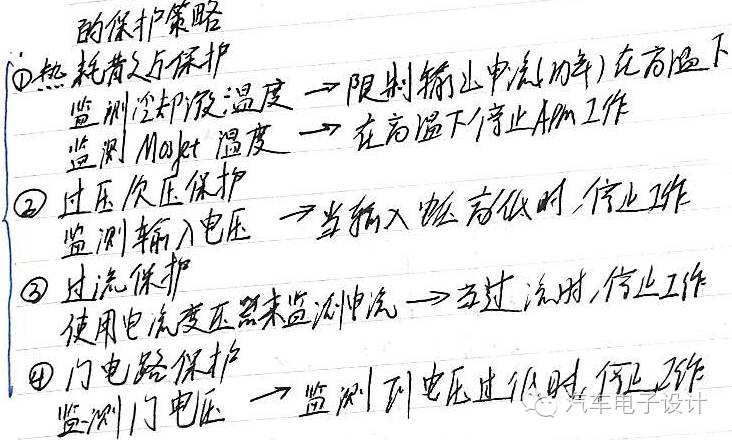 的保护策略
①热耗散与保护
监测冷却液温度 → 限制输出电流(功率)在高温下
监测 Mosfet 温度 → 在高温下停止APM工作
② 过压欠压保护
监测输入电压 → 当输入电压高低时,停止工作
③ 过流保护
使用电流变压器来监测电流 → 当过流时,停止工作
④ 门电路保护
监测门电压 → 监测到电压过低时,停止工作
汽车电子设计